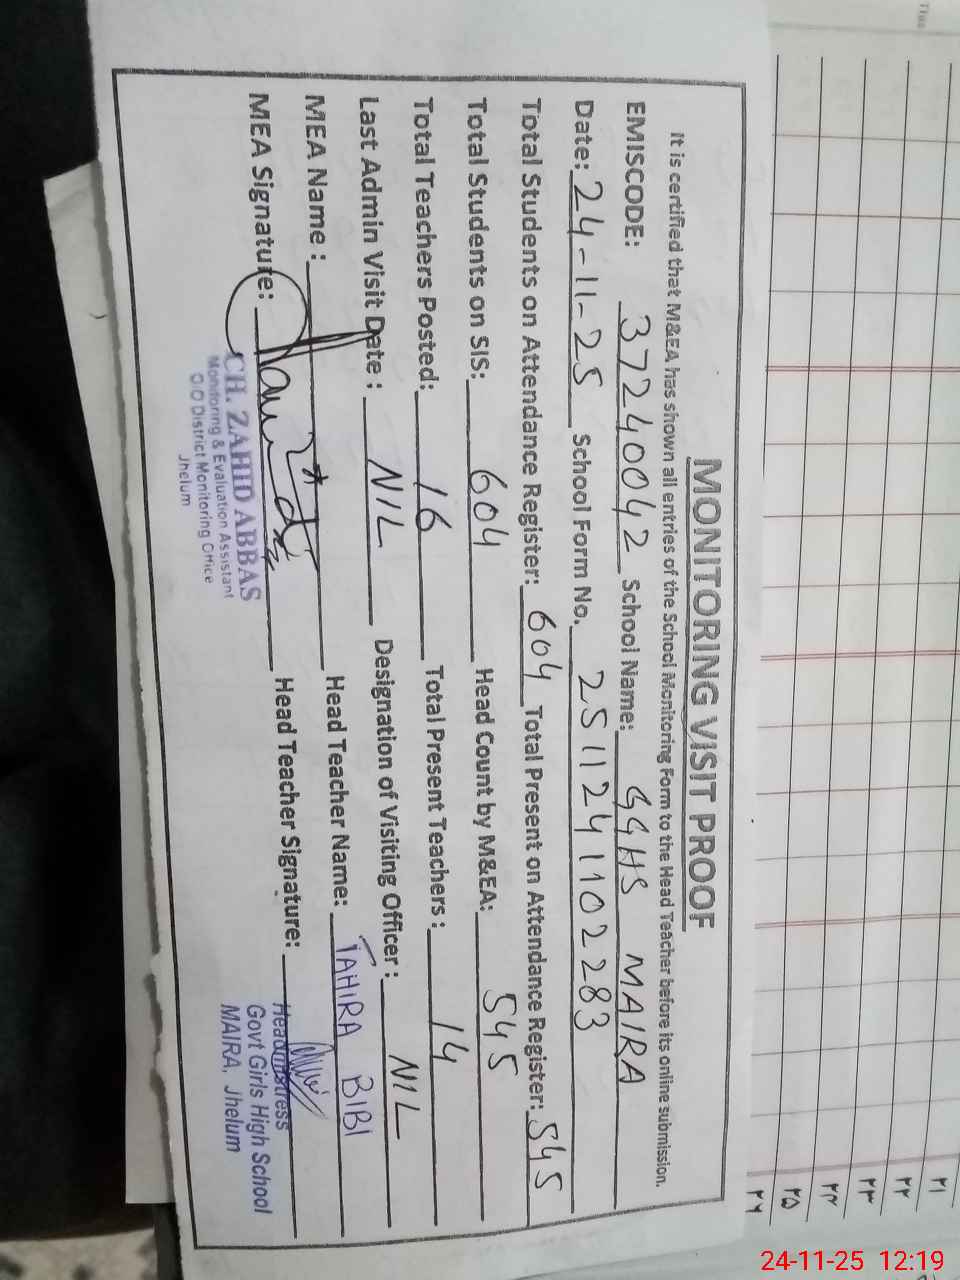 MONITORING VISIT PROOF
It is certified that M&EA has shown all entries of the School Monitoring Form to the Head Teacher before its online submission.
EMISCODE: 37240042 School Name: GGHS MAIRA
Date: 24-11-25 School Form No. 2511241102283
Total Students on Attendance Register: 604 Total Present on Attendance Register: 545
Total Students on SIS: 604 Head Count by M&EA: 545
Total Teachers Posted: 16 Total Present Teachers: 14
Last Admin Visit Date: NIL Designation of Visiting Officer: NIL
MEA Name: Head Teacher Name: TAHIRA BIBI
MEA Signature: Head Teacher Signature:
CH. ZAHID ABBAS
Monitoring & Evaluation Assistant
O/O District Monitoring Office
Jhelum
Headmistress
Govt Girls High School
MAIRA, Jhelum
۲۱
۲۲
۲۳
۲۴
۲۵
۲۶
24-11-25 12:19